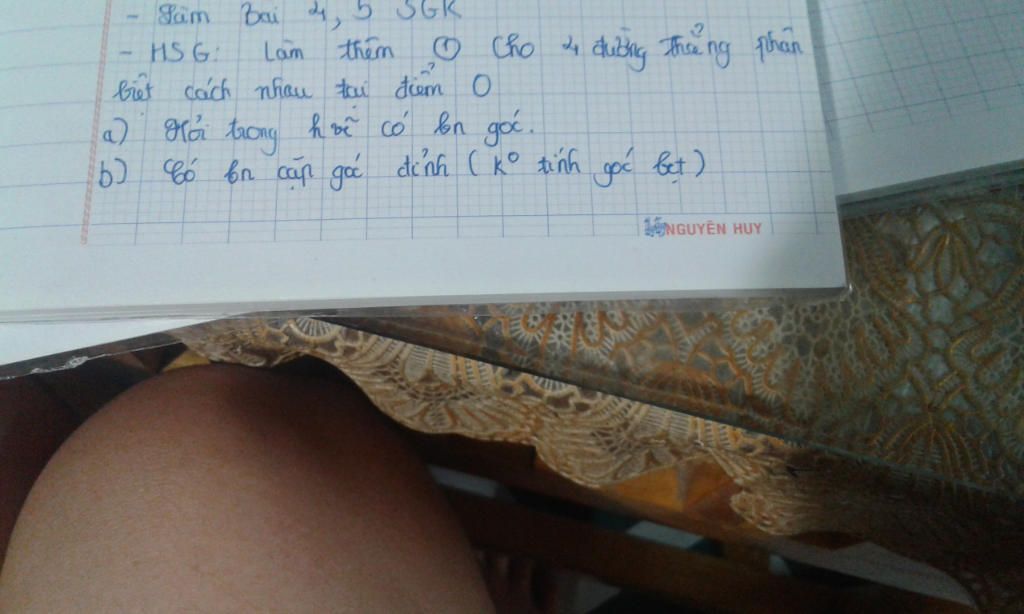 - Làm Bài 4, 5 SGK
- HSG: Làm thêm ① Cho 4 đường thẳng phân
biết cách nhau tại điểm O
a) Hỏi trong h vẽ có bn góc.
b) Có bn cặp góc đỉnh (K⁰ tính góc bẹt)
NGUYÊN HUY